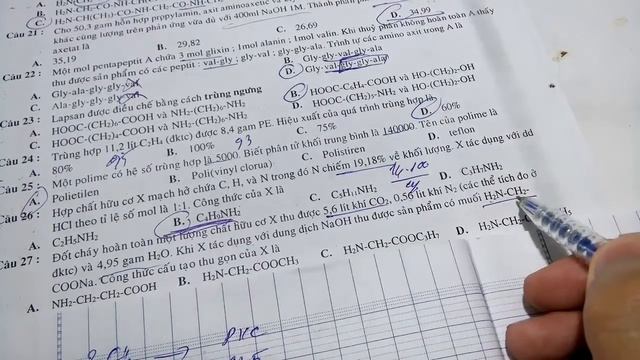 H₂N-CH₂-CO-NH-CH
C. H₂N-CH(CH₃)-CO-NH-CH₂-CO-NH-CH₂
Câu 21 : Cho 50,3 gam hỗn hợp propylamin, axit aminoaxetic và
khác cũng lượng trên phản ứng vừa đủ với 400ml NaOH 1M. Thành phần
axetat là
A. 35,19 B. 29,82 C. 26,69 D. 34,99
Câu 22 : Một mol pentapeptit A chứa 3 mol glixin ; 1mol alanin ; 1mol valin. Khi thuỷ phân không hoàn A thấy
thu được sản phẩm có các peptit : val-gly ; gly-val ; gly-gly-ala. Trình tự các amino axit trong A là
A. Gly-ala-gly-gly-val B. Gly-gly-val-gly-ala
C. Ala-gly-gly-gly D. Gly-val-gly-gly-ala
Câu 23 : Lapsan được điều chế bằng cách trùng ngưng
A. HOOC-(CH₂)₆-COOH và NH₂-(CH₂)₆-NH₂ B. HOOC-C₆H₄-COOH và HO-(CH₂)₂-OH
C. HOOC-(CH₂)₄-COOH và NH₂-(CH₂)₆-NH₂ D. HOOC-(CH₂)₅-NH₂ và HO-(CH₂)₂-OH
Câu 24 : Trùng hợp 11,2 lít C₂H₄ (đktc) được 8,4 gam PE. Hiệu xuất của quá trình trùng hợp là
A. 80% B. 100% C. 75% D. 60%
93
Câu 25 : Một polime có hệ số trùng hợp là 5000. Biết phân tử khối trung bình là 140000. Tên của polime là
A. Polietilen B. Poli(vinyl clorua) C. Polisiren D. teflon
14.100
Câu 26 : Hợp chất hữu cơ X mạch hở chứa C, H, và N trong đó N chiếm 19,18% về khối lượng. X tác dụng với dd
HCl theo tỉ lệ số mol là 1:1. Công thức của X là
A. C₂H₅NH₂ B. C₄H₉NH₂ C. C₅H₁₁NH₂ D. C₃H₇NH₂
Câu 27 : Đốt cháy hoàn toàn một lượng chất hữu cơ X thu được 5,6 lít khí CO₂, 0,56 lít khí N₂ (các thể tích đo ở
đktc) và 4,95 gam H₂O. Khi X tác dụng với dung dịch NaOH thu được sản phẩm có muối H₂N-CH₂-
COONa. Công thức cấu tạo thu gọn của X là
A. NH₂-CH₂-CH₂-COOH B. H₂N-CH₂-COOCH₃ C. H₂N-CH₂-COOC₃H₇ D. H₂N-CH₂